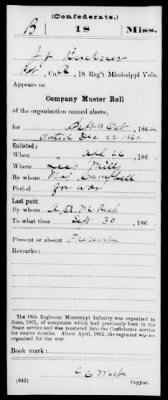 (Confederate.)
B 18 Miss.
Co. 18 Reg't Mississippi Vols.
Appears on
Company Muster Roll
of the organization named above,
for Sep & Oct, 186
dated Dec 186
Enlisted:
When 186
Where
By whom Campbell
Period for war
Last paid:
By whom
To what time Sept 30 186
Present or absent Present
Remarks:
The 18th Regiment Mississippi Infantry was organized in
June, 1861, of companies which had previously been in the
State service and was mustered into the Confederate service
for twelve months. About April, 1862, the regiment was re-
organized for the war.
Book mark:
(642) Copyist.